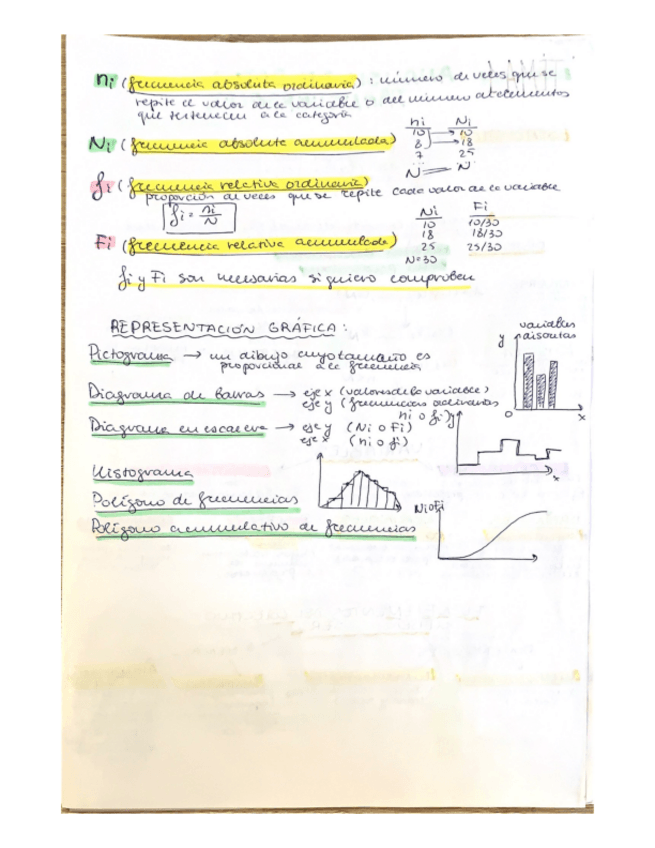 ni (frecuencia absoluta ordinaria) : número de veces que se
repite el valor de la variable o del número de elementos
que pertenecen a la categoría
ni Ni
10 10
8 18
7 25
N N
Ni (frecuencia absoluta acumulada)
fi (frecuencia relativa ordinaria)
proporción de veces que se repite cada valor de la variable
fi = ni/N
Ni Fi
10 10/30
18 18/30
25 25/30
N=30
Fi (frecuencia relativa acumulada)
fi y Fi son necesarias si quiero comproben
REPRESENTACIÓN GRÁFICA :
Pictograma → un dibujo cuyo tamaño es
proporcional a la frecuencia
variables
discretas
y
0 x
Diagrama de barras → eje x (valores de la variable)
eje y (frecuencias ordinarias
ni o fi)
Diagrama en escalera → eje y (Ni o Fi)
eje x (ni o fi)
y
x
Histograma
Polígono de frecuencias
Polígono acumulativo de frecuencias
Ni o Fi